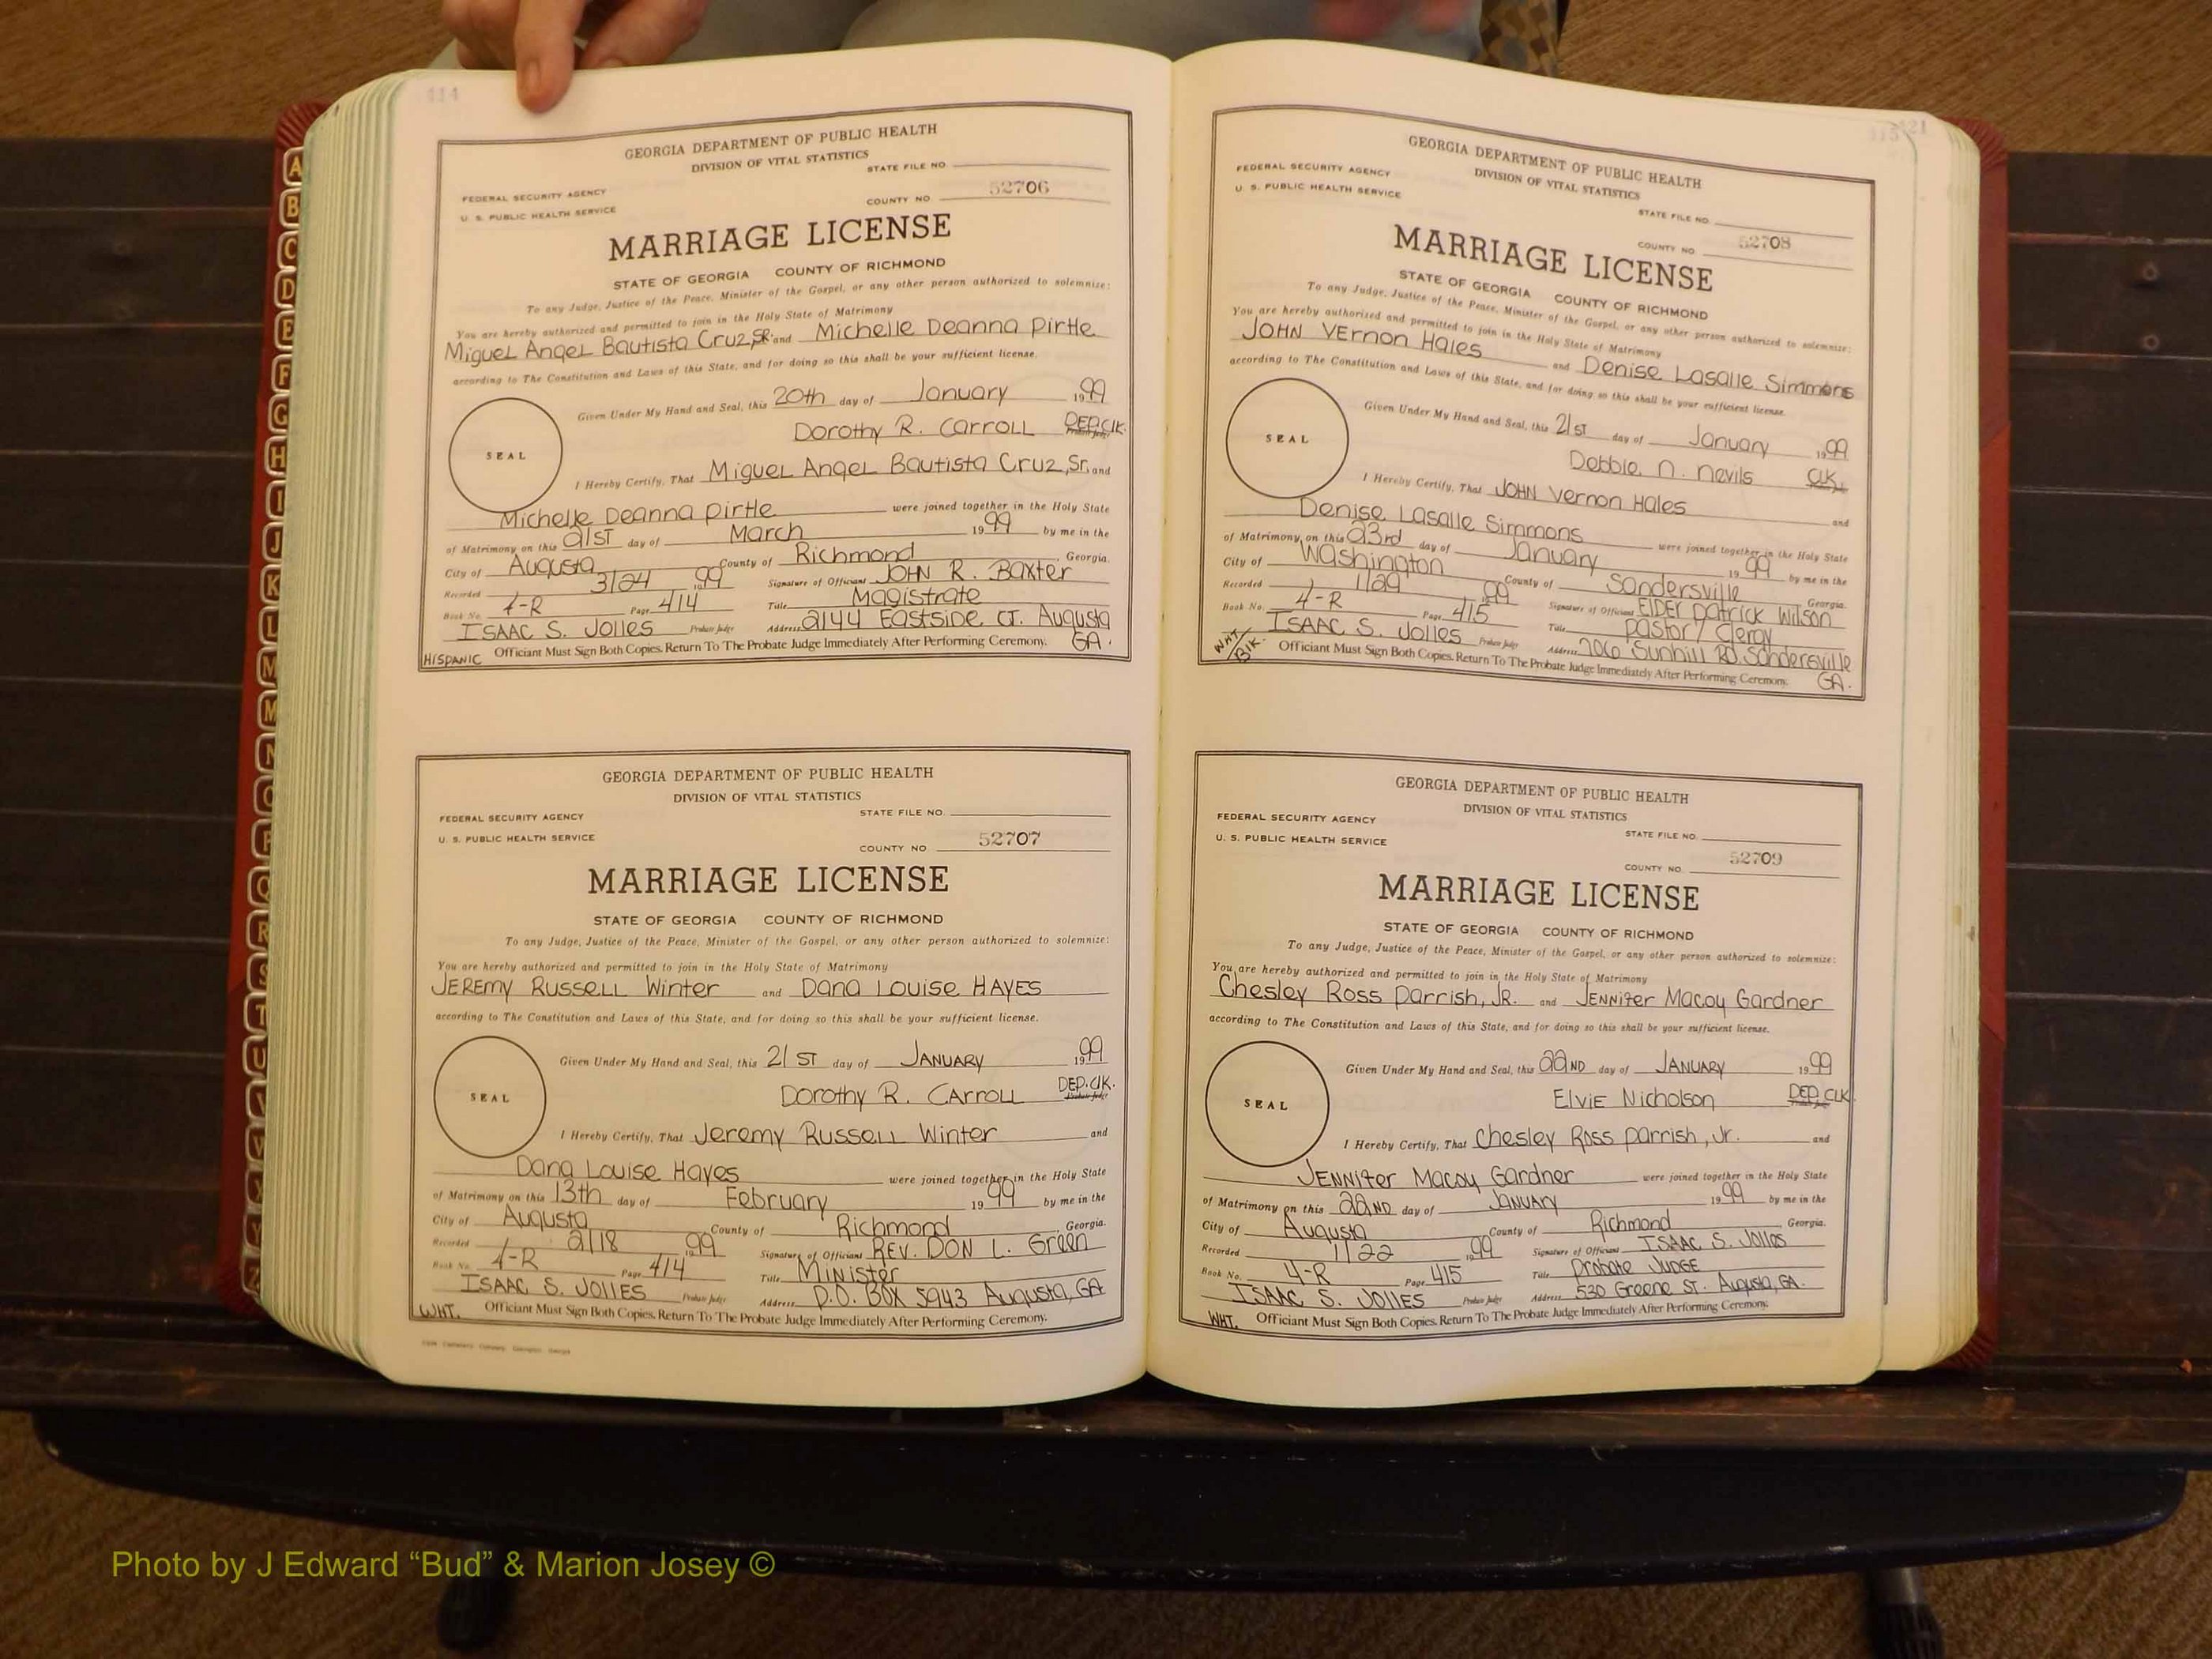 414
GEORGIA DEPARTMENT OF PUBLIC HEALTH
DIVISION OF VITAL STATISTICS
STATE FILE NO.
FEDERAL SECURITY AGENCY
U. S. PUBLIC HEALTH SERVICE
COUNTY NO. 52706
MARRIAGE LICENSE
STATE OF GEORGIA COUNTY OF RICHMOND
To any Judge, Justice of the Peace, Minister of the Gospel, or any other person authorized to solemnize:
You are hereby authorized and permitted to join in the Holy State of Matrimony
Miguel Angel Bautista Cruz, SR. and Michelle Deanna Pirtle
according to The Constitution and Laws of this State, and for doing so this shall be your sufficient license.
Given Under My Hand and Seal, this 20th day of January 1999
Dorothy R. Carroll DEP. Clk.
SEAL
I Hereby Certify, That Miguel Angel Bautista Cruz, Sr. and
Michelle Deanna Pirtle were joined together in the Holy State
of Matrimony on this 21ST day of March 1999 by me in the
City of Augusta County of Richmond, Georgia.
Recorded 3/24 1999 Signature of Officiant JOHN R. Baxter
Book No. 4-R Page 414 Title Magistrate
ISAAC S. Jolles Probate Judge Address 2144 Eastside CT. Augusta GA.
HISPANIC Officiant Must Sign Both Copies. Return To The Probate Judge Immediately After Performing Ceremony.
GEORGIA DEPARTMENT OF PUBLIC HEALTH
DIVISION OF VITAL STATISTICS
FEDERAL SECURITY AGENCY STATE FILE NO.
U. S. PUBLIC HEALTH SERVICE
COUNTY NO. 52707
MARRIAGE LICENSE
STATE OF GEORGIA COUNTY OF RICHMOND
To any Judge, Justice of the Peace, Minister of the Gospel, or any other person authorized to solemnize:
You are hereby authorized and permitted to join in the Holy State of Matrimony
JEREMY RUSSELL Winter and Dana Louise HAYES
according to The Constitution and Laws of this State, and for doing so this shall be your sufficient license.
Given Under My Hand and Seal, this 21ST day of JANUARY 1999
Dorothy R. CArroLL DEP. Clk.
SEAL
I Hereby Certify, That Jeremy Russell Winter and
Dana Louise Hayes were joined together in the Holy State
of Matrimony on this 13th day of February 1999 by me in the
City of Augusta County of Richmond, Georgia.
Recorded 2/18 1999 Signature of Officiant REV. DON L. Green
Book No. 4-R Page 414 Title Minister
ISAAC S. JOLLES Probate Judge Address P.O. BOX 5943 Augusta, GA
WHT. Officiant Must Sign Both Copies. Return To The Probate Judge Immediately After Performing Ceremony.
415 421
GEORGIA DEPARTMENT OF PUBLIC HEALTH
DIVISION OF VITAL STATISTICS
FEDERAL SECURITY AGENCY
U. S. PUBLIC HEALTH SERVICE
STATE FILE NO.
COUNTY NO. 52708
MARRIAGE LICENSE
STATE OF GEORGIA COUNTY OF RICHMOND
To any Judge, Justice of the Peace, Minister of the Gospel, or any other person authorized to solemnize:
You are hereby authorized and permitted to join in the Holy State of Matrimony
JOHN Vernon Hales and Denise Lasalle Simmons
according to The Constitution and Laws of this State, and for doing so this shall be your sufficient license.
Given Under My Hand and Seal, this 21ST day of January 1999
Debbie N. Nevils Clk.
SEAL
I Hereby Certify, That JOHN Vernon Hales and
Denise Lasalle Simmons were joined together in the Holy State
of Matrimony on this 23rd day of January 1999 by me in the
City of Washington County of Sandersville Georgia.
Recorded 1/29 1999 Signature of Officiant ELDER Patrick Wilson
Book No. 4-R Page 415 Title Pastor / Clergy
ISAAC S. Jolles Probate Judge Address 706 Sunhill RD. Sandersville GA.
WHT/BLK. Officiant Must Sign Both Copies. Return To The Probate Judge Immediately After Performing Ceremony.
GEORGIA DEPARTMENT OF PUBLIC HEALTH
DIVISION OF VITAL STATISTICS
FEDERAL SECURITY AGENCY
U. S. PUBLIC HEALTH SERVICE
STATE FILE NO.
COUNTY NO. 52709
MARRIAGE LICENSE
STATE OF GEORGIA COUNTY OF RICHMOND
To any Judge, Justice of the Peace, Minister of the Gospel, or any other person authorized to solemnize:
You are hereby authorized and permitted to join in the Holy State of Matrimony
Chesley Ross Parrish, JR. and JENNifer Macoy Gardner
according to The Constitution and Laws of this State, and for doing so this shall be your sufficient license.
Given Under My Hand and Seal, this 22ND day of JANUARY 1999
ELVIE Nicholson DEP. CLK
SEAL
I Hereby Certify, That Chesley Ross Parrish, Jr. and
JENNifer Macoy Gardner were joined together in the Holy State
of Matrimony on this 22ND day of JANUARY 1999 by me in the
City of Augusta County of Richmond, Georgia.
Recorded 1/22 1999 Signature of Officiant ISAAC S. Jolles
Book No. 4-R Page 415 Title Probate JUDGE
ISAAC S. JOLLES Probate Judge Address 530 Greene ST. Augusta, GA.
WHT. Officiant Must Sign Both Copies. Return To The Probate Judge Immediately After Performing Ceremony.
A
B
C
D
E
F
G
H
I
J
K
L
M
M
N
O
P
Q
R
S
T
U
V
W
X
Y
Z
Photo by J Edward “Bud” & Marion Josey ©